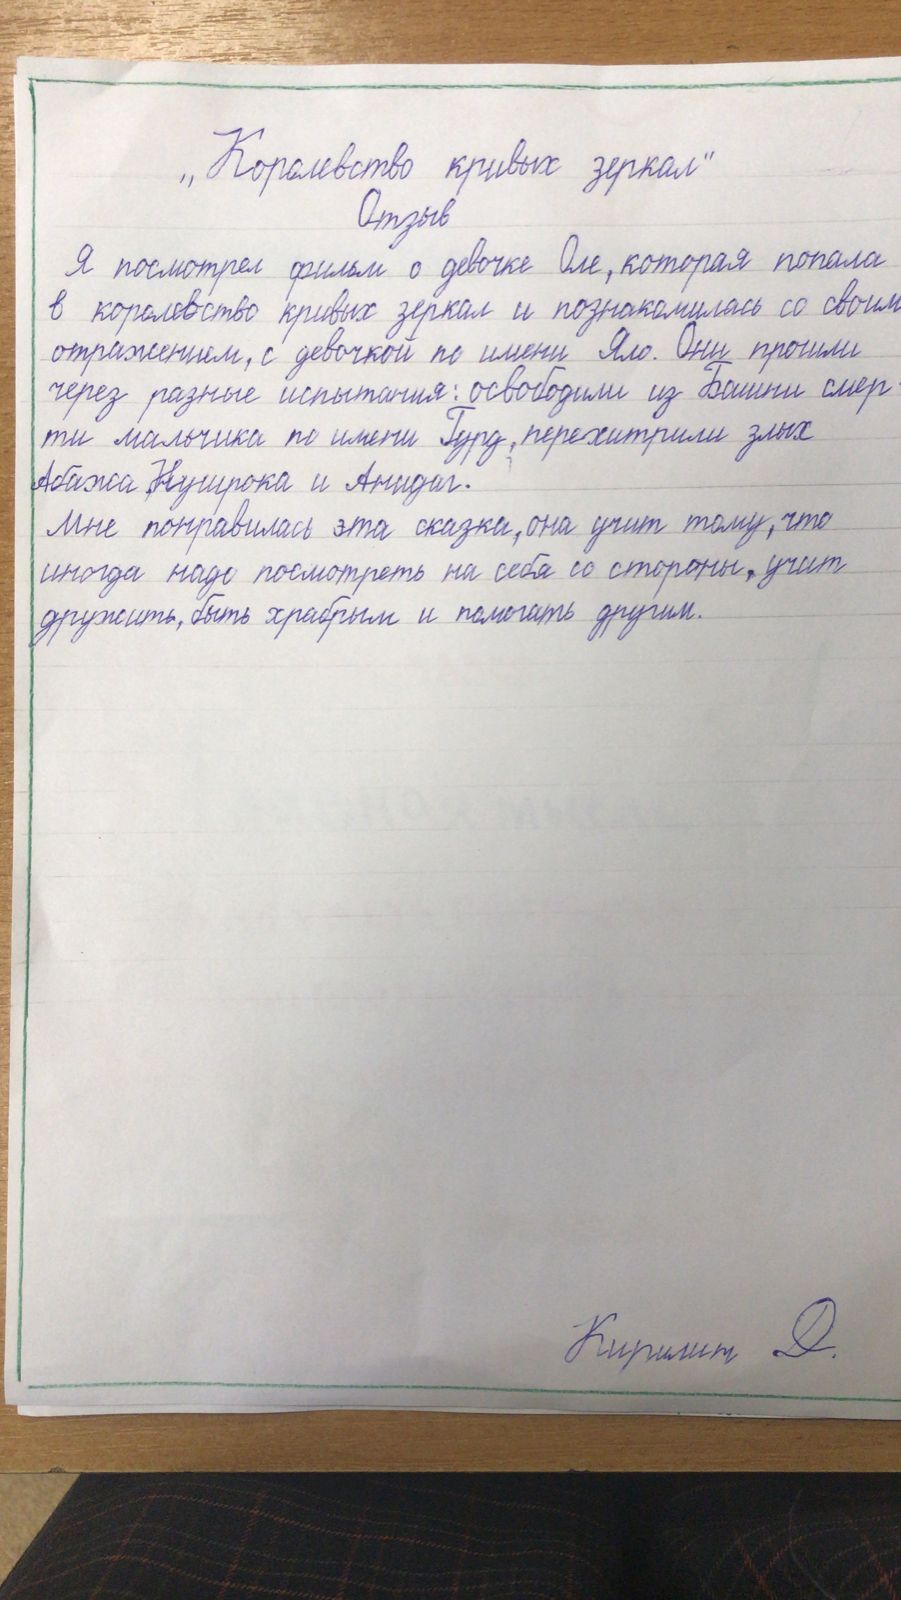 „Королевство кривых зеркал"
Отзыв
Я посмотрел фильм о девочке Оле, которая попала
в королевство кривых зеркал и познакомилась со своим
отражением, с девочкой по имени Яло. Они прошли
через разные испытания: освободили из Башни смер-
ти мальчика по имени Гурд, перехитрили злых
Абажа, Нушрока и Анидаг.
Мне понравилась эта сказка, она учит тому, что
иногда надо посмотреть на себя со стороны, учит
дружить, быть храбрым и помогать другим.
Д.